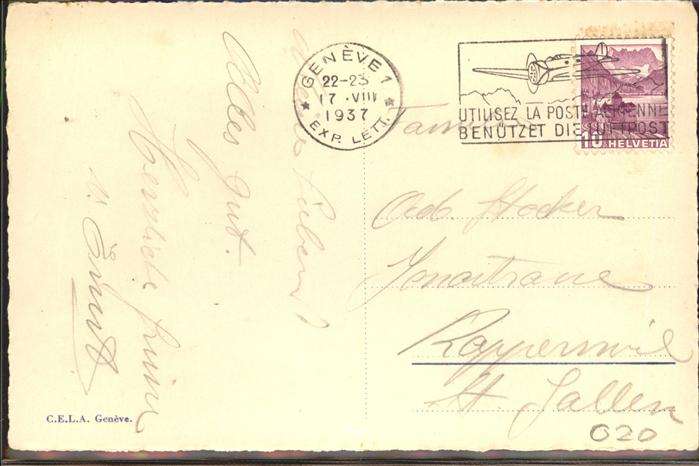 GENÈVE 1
22-23
17.VIII
1937
EXP. LETT.
UTILISEZ LA POSTE AÉRIENNE
BENÜTZET DIE LUFTPOST
10 HELVETIA
Alles gut.
Herzliche
Fam.
Stocker
Jonastrasse
Rapperswil
St. Gallen
020
C.E.L.A. Genève.